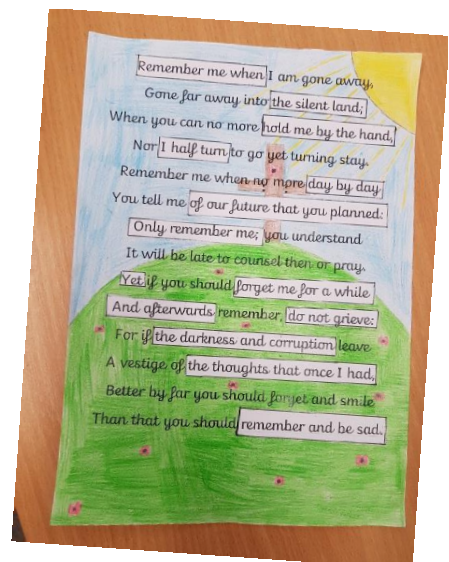 Remember me when I am gone away,
Gone far away into the silent land;
When you can no more hold me by the hand,
Nor I half turn to go yet turning stay.
Remember me when no more day by day
You tell me of our future that you planned:
Only remember me; you understand
It will be late to counsel then or pray.
Yet if you should forget me for a while
And afterwards remember, do not grieve:
For if the darkness and corruption leave
A vestige of the thoughts that once I had,
Better by far you should forget and smile
Than that you should remember and be sad.